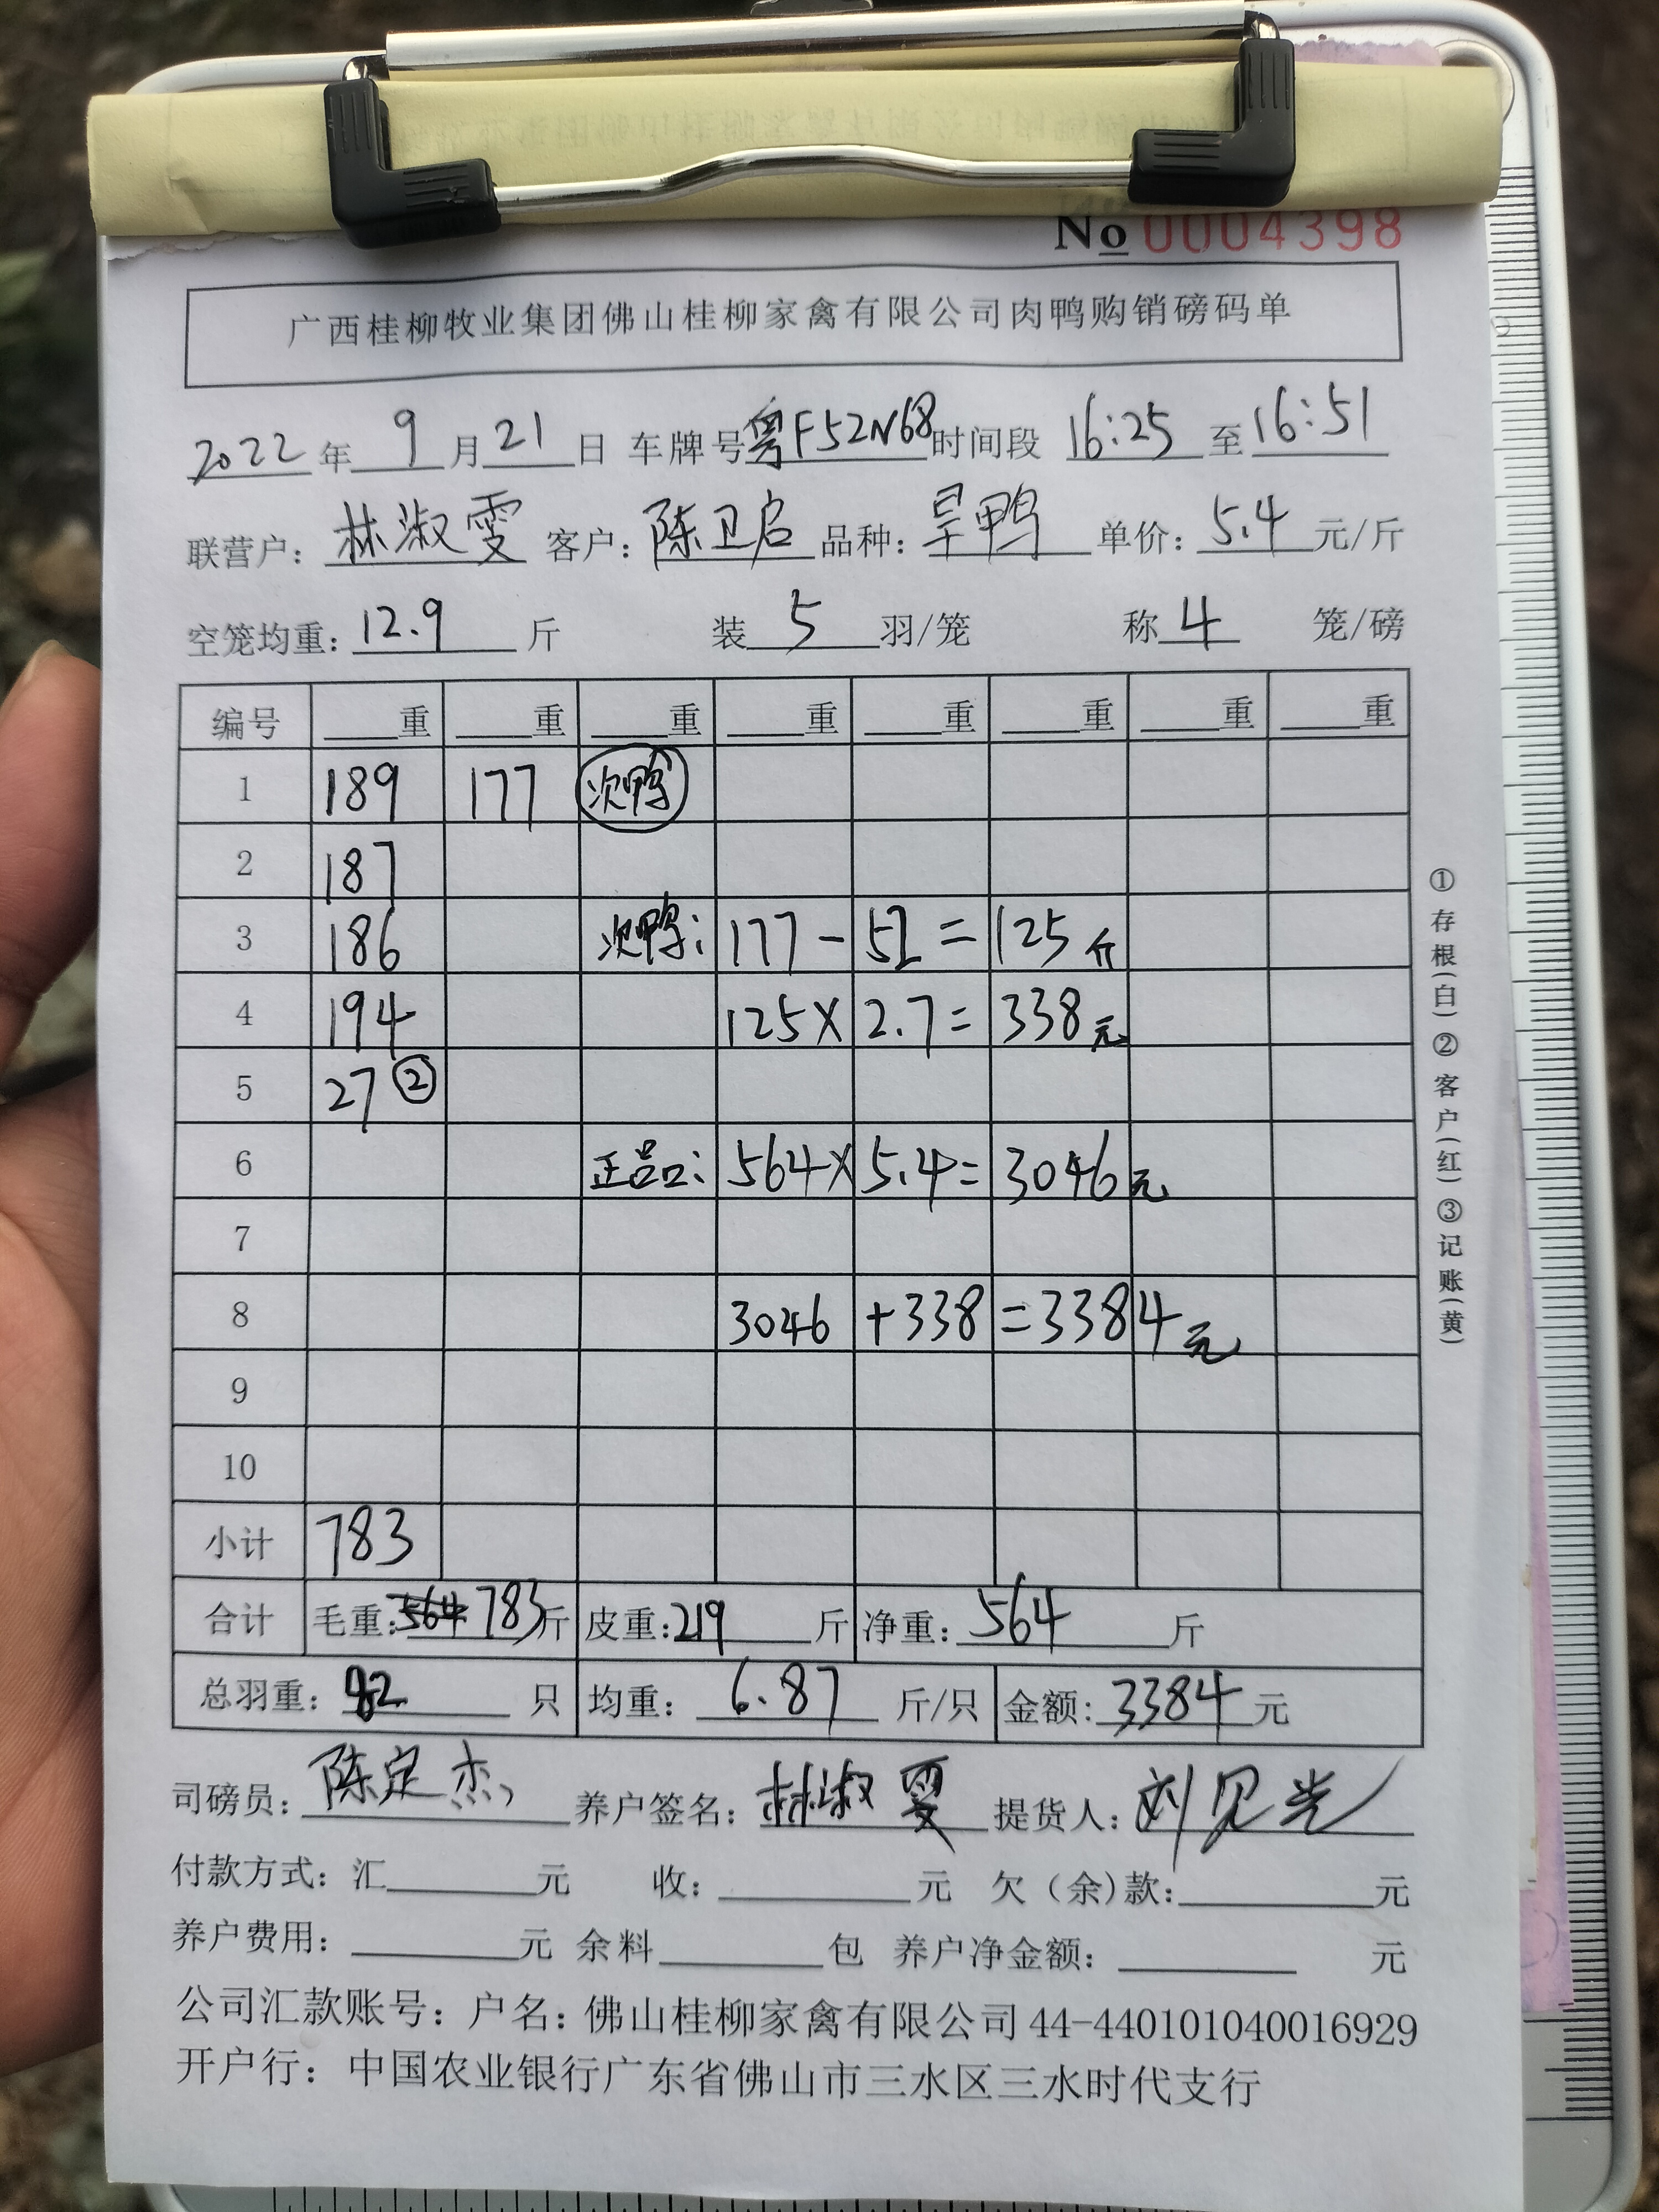 No 0004398
广西桂柳牧业集团佛山桂柳家禽有限公司肉鸭购销磅码单
2022年9月21日 车牌号粤F52N68时间段 16:25 至16:51
联营户：林淑雯 客户：陈卫启 品种：旱鸭 单价：5.4元/斤
空笼均重：12.9 斤 装5羽/笼 称4 笼/磅
编号 重 重 重 重 重 重 重 重
1 189 177 次鸭
2 187
3 186 次鸭：177-52=125斤
4 194 125×2.7=338元
5 27②
6 正品：564×5.4=3046元
7
8 3046+338=3384元
9
10
小计 783
合计 毛重：564 783斤 皮重：219斤 净重：564斤
总羽重：82只 均重：6.87斤/只 金额：3384元
司磅员：陈定杰 养户签名：林淑雯 提货人：刘见光
付款方式：汇元 收：元 欠（余）款：元
养户费用：元 余料包 养户净金额：元
公司汇款账号：户名：佛山桂柳家禽有限公司44-440101040016929
开户行：中国农业银行广东省佛山市三水区三水时代支行
①存根（白）②客户（红）③记账（黄）